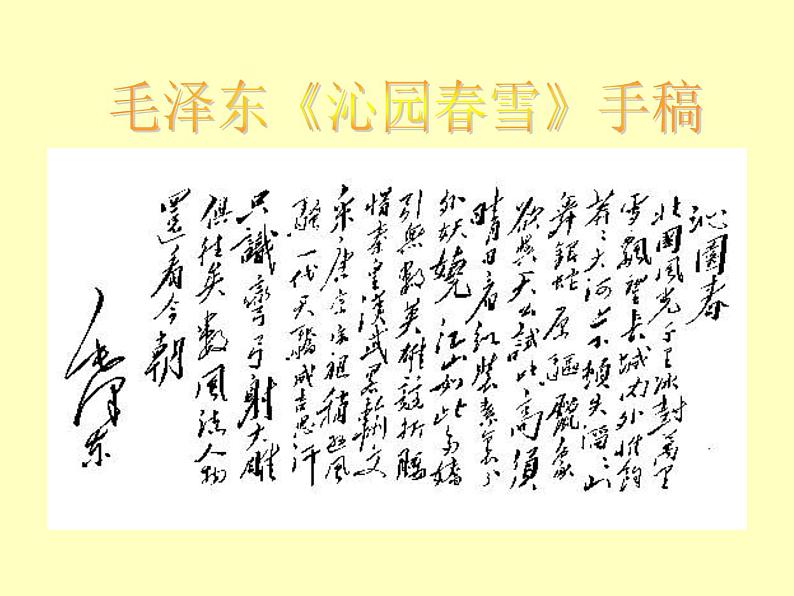 毛泽东《沁园春雪》手稿
沁園春
北國風光千里冰封萬里
雪飄望長城內外惟餘
莽々大河上下頓失滔々山
舞銀蛇原驅臘象
欲與天公試比高須
晴日看紅裝素裹分
外妖嬈江山如此多嬌
引無數英雄競折腰
惜秦皇漢武略輸文
采唐宗宋祖稍遜風
騷一代天驕成吉思汗
只識彎弓射大雕
俱往矣數風流人物
還看今朝
毛澤东